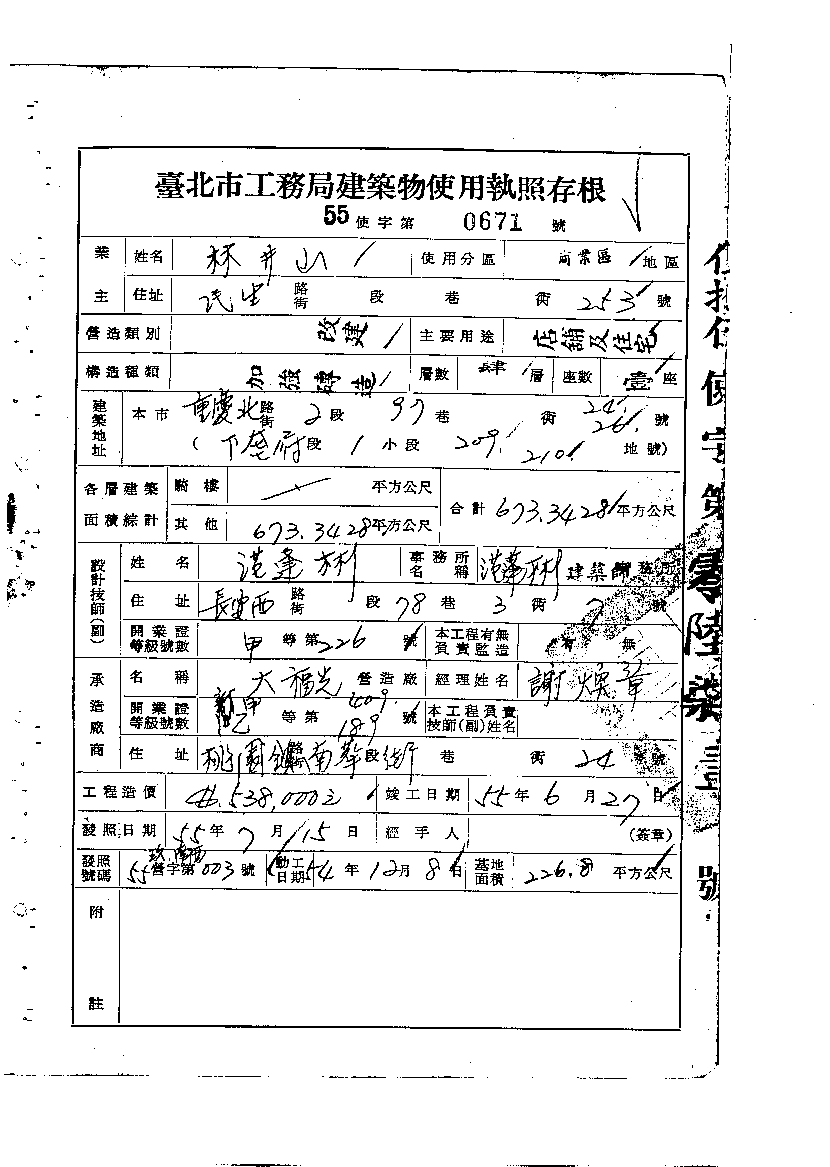 臺北市工務局建築物使用執照存根
55 使字第 0671 號
業主 姓名 林井山 使用分區 商業區 地區
住址 民生 路街 段 巷 衖 253 號
營造類別 改建 主要用途 店舖及住宅
構造種類 加強磚造 層數 肆 層 座數 壹 座
建築地址 本市 重慶北 路街 2 段 97 巷 衖 24. 26. 號
( 下奎府 段 1 小段 209. 210. 地號)
各層建築面積綜計 騎樓 平方公尺 合計 673.3428 平方公尺
其他 673.3428 平方公尺
設計技師(副) 姓名 事務所名稱 建築師事務所
住址 長安西 路街 段 78 巷 3 衖 7 號
開業證等級號數 甲 等第 226 號 本工程有無負責監造 有 無
承造廠商 名稱 大福光 營造廠 經理姓名 謝煥章
開業證等級號數 甲乙 等第 409. 189 號 本工程負責技師(副)姓名
住址 桃園鎮南華街 路 段 巷 衖 24 號
工程造價 538,000 竣工日期 55 年 6 月 27 日
發照日期 55 年 7 月 15 日 經手人 (簽章)
發照號碼 55 營字第 003 號 動工日期 54 年 12 月 8 日 基地面積 226.8 平方公尺
附註
使字第零陸柒壹號